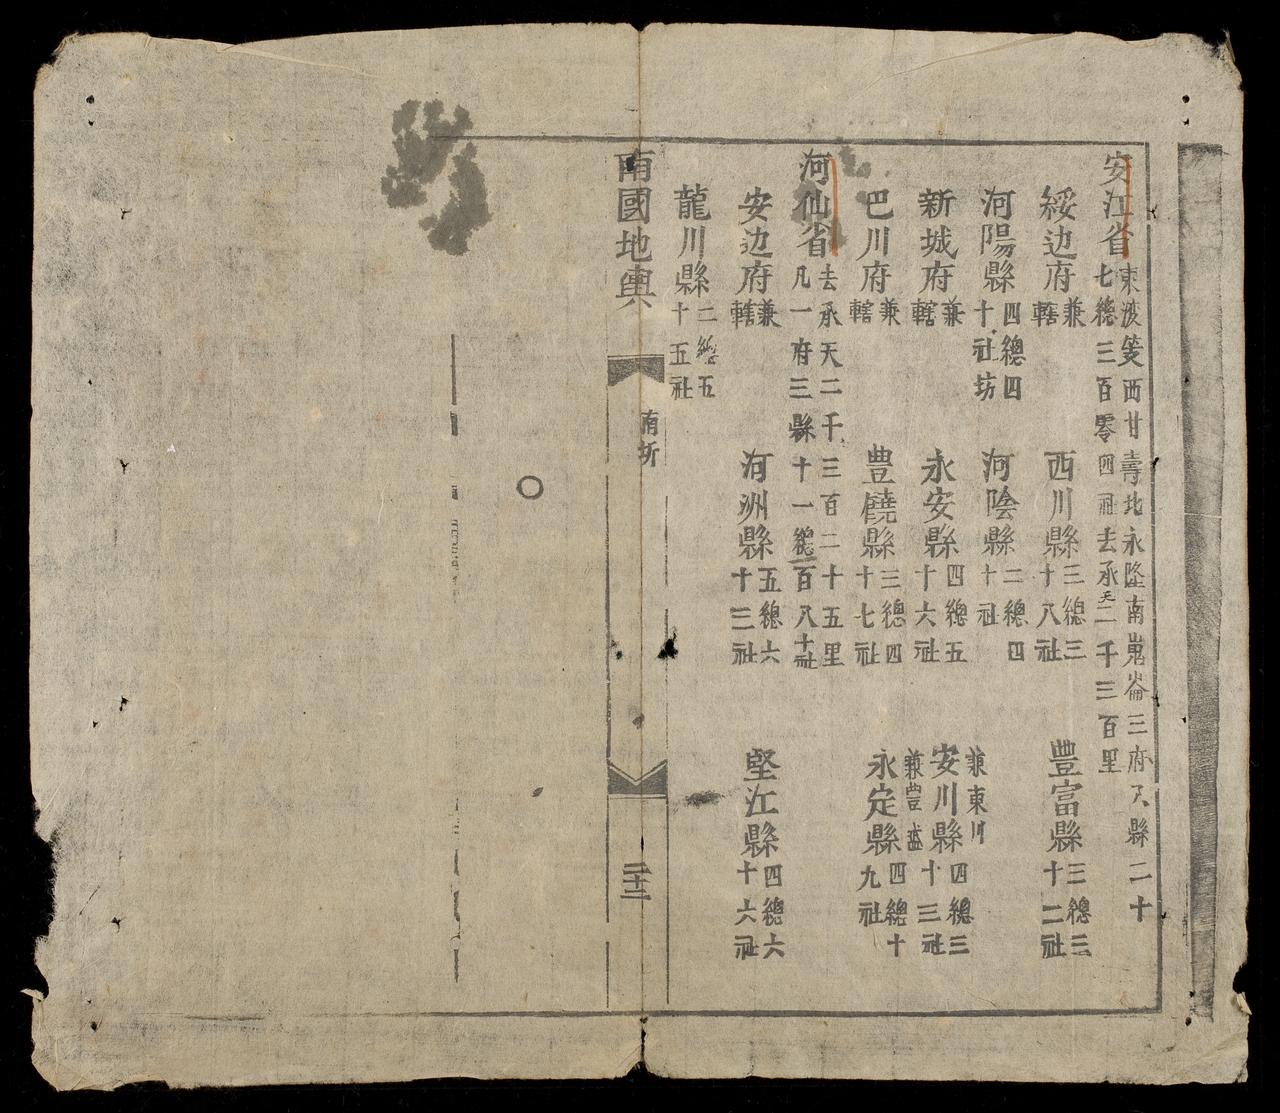 安江省
東波篾西甘壽地永隆南崑崙三府八縣二十
七總三百零四社去承天二千三百里
綏边府
兼
轄
西川縣
三總三
十八社
豐富縣
三總三
十二社
河陽縣
四總四
十社坊
河陰縣
二總四
十社
兼東川
新城府
兼
轄
永安縣
四總五
十六社
安川縣
四總三
十三社
兼豊盛
巴川府
兼
轄
豊饒縣
三總四
十七社
永定縣
四總十
九社
河仙省
去承天二千三百二十五里
凡一府三縣十一總一百八十社
安边府
兼
轄
河洲縣
五總六
十三社
堅江縣
四總六
十六社
龍川縣
二總五
十五社
南國地輿
南圻
二十三